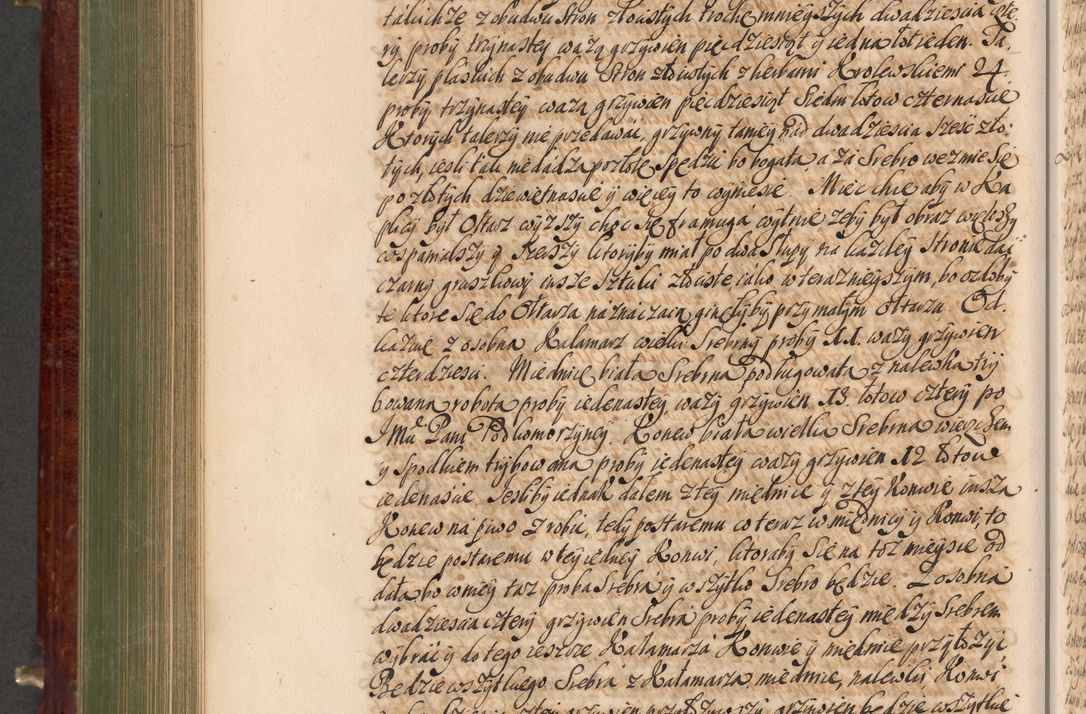 talichze z obudwu stron złocistych trochę mnieyszych dwadziescia czte
ry proby trzynastey ważą grzywien pięcdziesiąt y iedna łot ieden. Ta-
lerzy płaskich z obudwu stron złocistych z herbami Krolewskiemi 24.
proby trzynastey ważą grzywien piecdziesiąt siedm łotow czternascie
Ktorych talerzy nie przedawać, grzywny taniey nad dwadziescia sześć zło-
tych, iesli tak nie dadzą pozłotę spędzić bo bogata, a za srebro wezmie się
po złotych dziewiętnascie y więcey to wyniesie. Mieć chcę aby w Ka
plicy był Ołtarz wyższy choc się framuga wytnie żeby był obraz większy
wspanialszy y szerszy ktoryby miał po dwa słupy na każdey stronie dać
czarny gruszkowy insze sztuki złociste iako w teraznieyszym, bo ozdoby
te ktore się do Ołtarza naznaczaią ginęłyby przy małym Ołtarzu. Od-
kazuię z osobna Kałamarz wielki srebrny proby 11. waży grzywien
czterdziesci. Miednica biała srebrna podługowata z nalewką try
bowana robota proby iedenastey waży grzywien 13 łotow cztery po
JMci Pani Podkomorzyney. Konew biała wielka srebrna wierzchem
y spodkiem trybowana proby iedenastey waży grzywien 12 łotow
iedenascie Jesliby iednak dałem z tey miednice y z tey Konwie insza
Konew na piwo zrobić, tedy postaremu co teraz w miednicy y Konwi, to
będzie postaremu w tey iedney Konwi, ktoraby się na toż mieysce od
dała, bo w niey taż proba srebra y wszytko srebro będzie. Z osobna
dwadziescia cztery grzywien srebra proby iedenastey między srebrem
wybrać y do tego ieszcze Kałamarza Konwie y miednice przyłożyć
Będzie wszytkiego srebra z Kałamarza, miednice, nalewki Konwi
grzywien będzie wszytkie